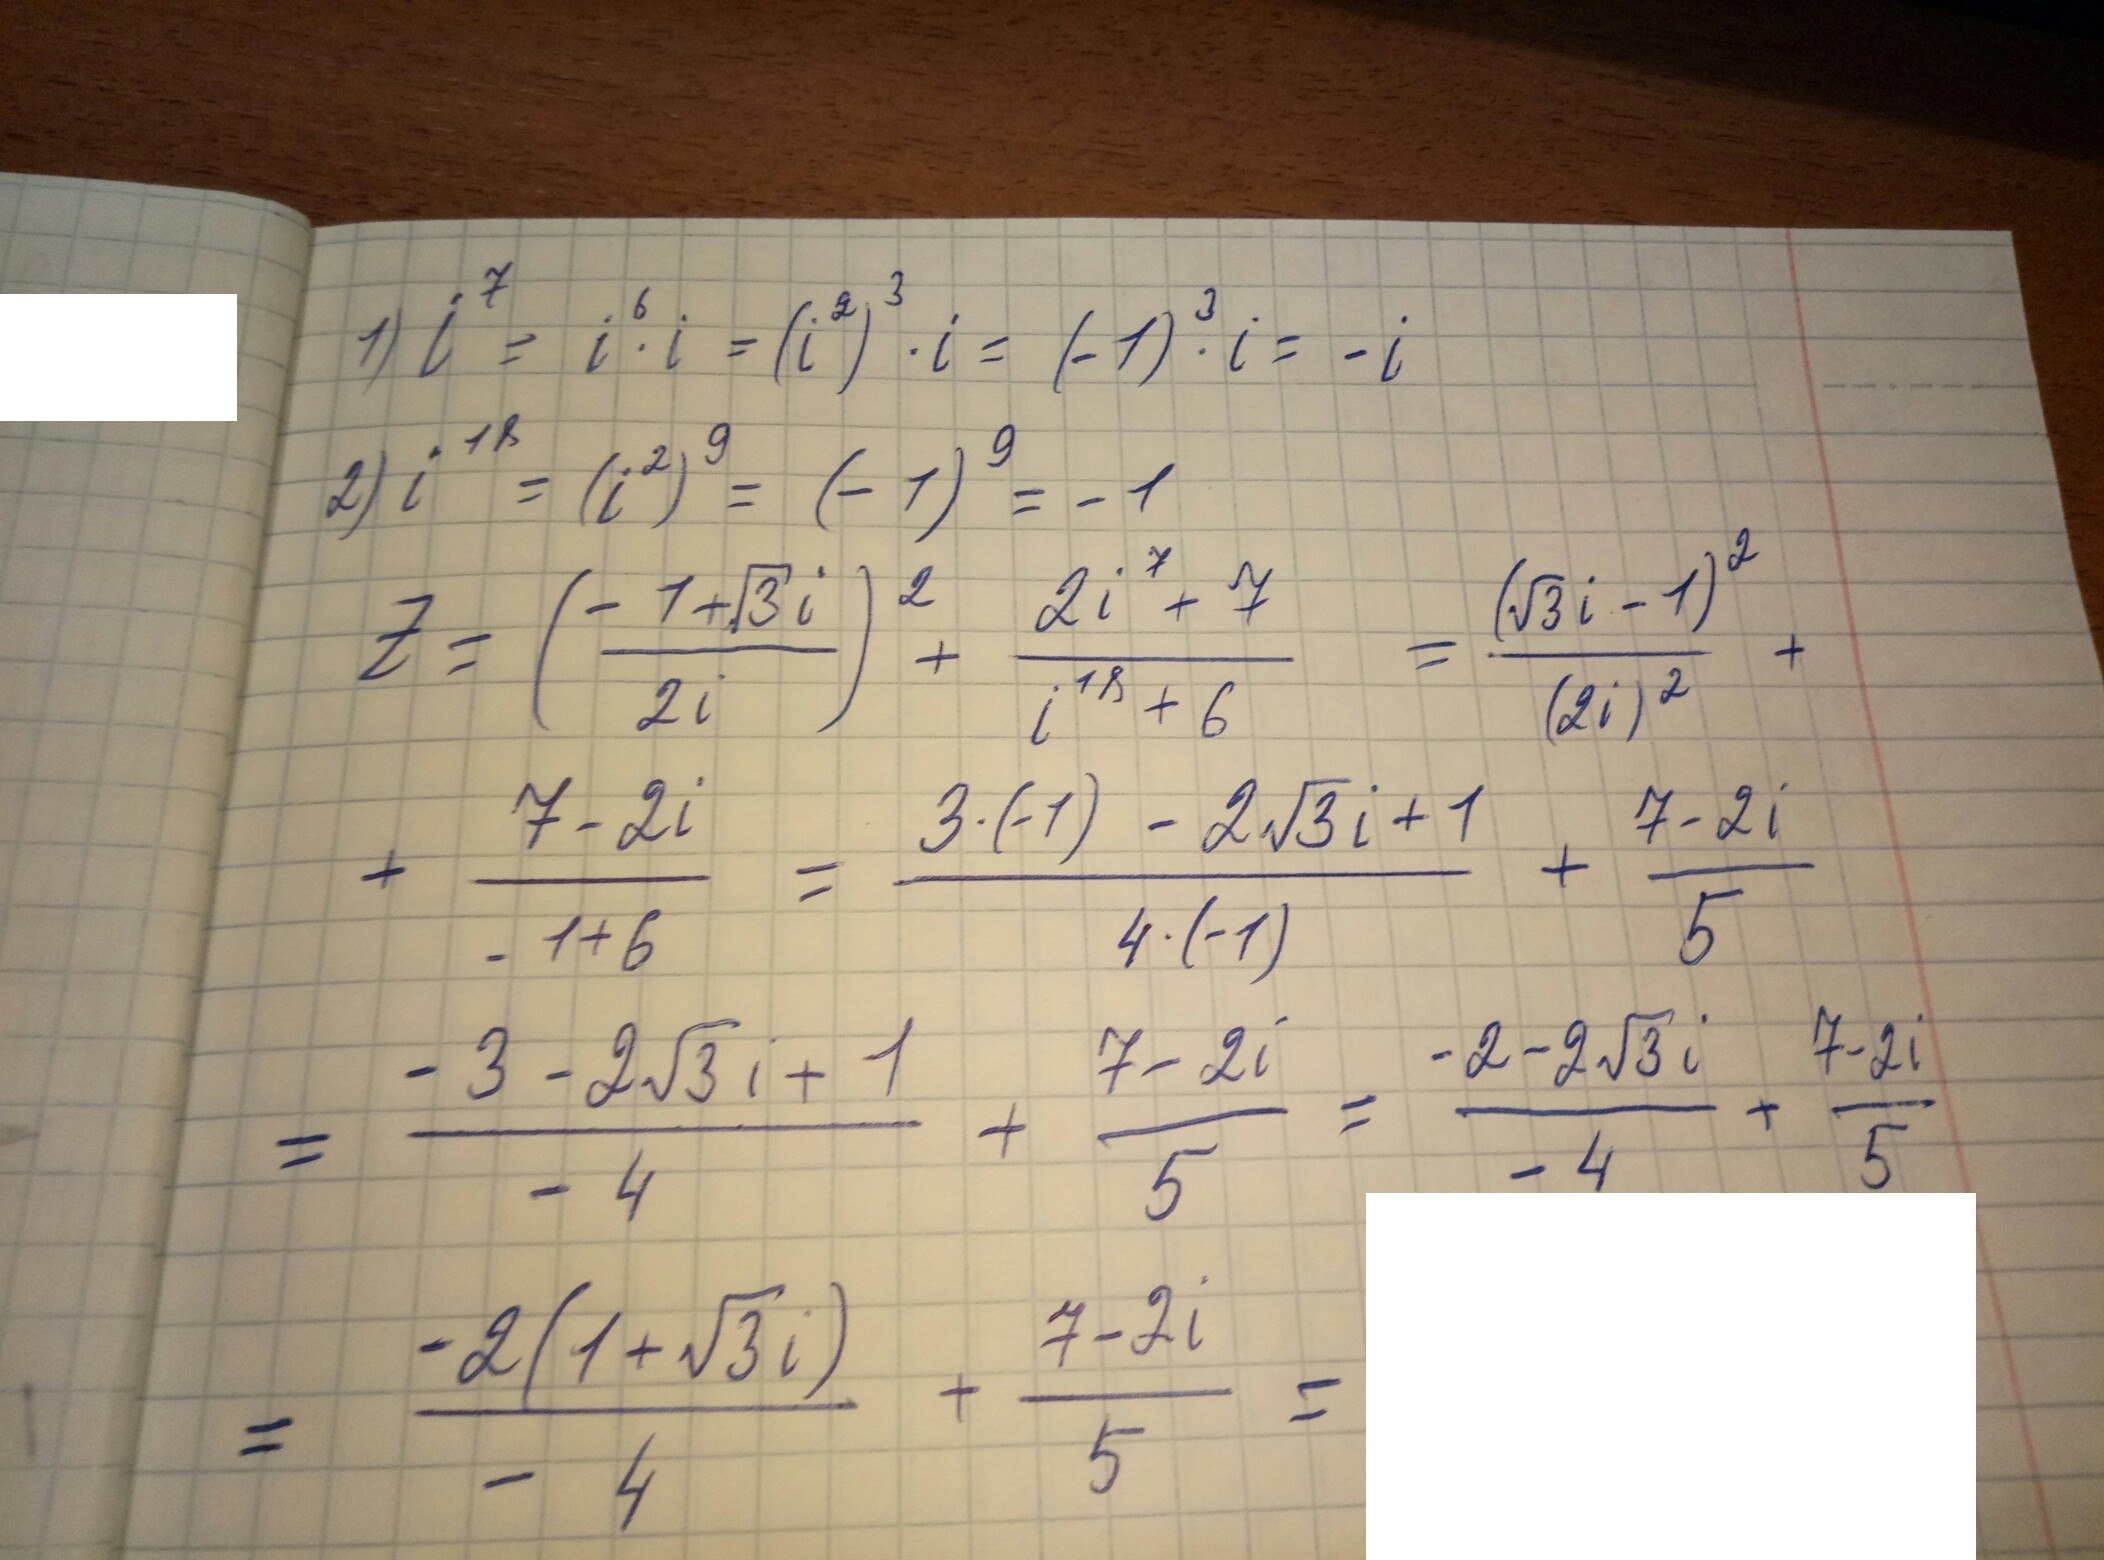 1) i⁷ = i⁶ · i = (i²)³ · i = (-1)³ · i = -i
2) i¹⁸ = (i²)⁹ = (-1)⁹ = -1
Z = ((-1+√3i)/(2i))² + (2i⁷+7)/(i¹⁸+6) = (√3i-1)²/(2i)² +
+ (7-2i)/(-1+6) = (3·(-1) - 2√3i+1)/(4·(-1)) + (7-2i)/5
= (-3-2√3i+1)/(-4) + (7-2i)/5 = (-2-2√3i)/(-4) + (7-2i)/5
= (-2(1+√3i))/(-4) + (7-2i)/5 =